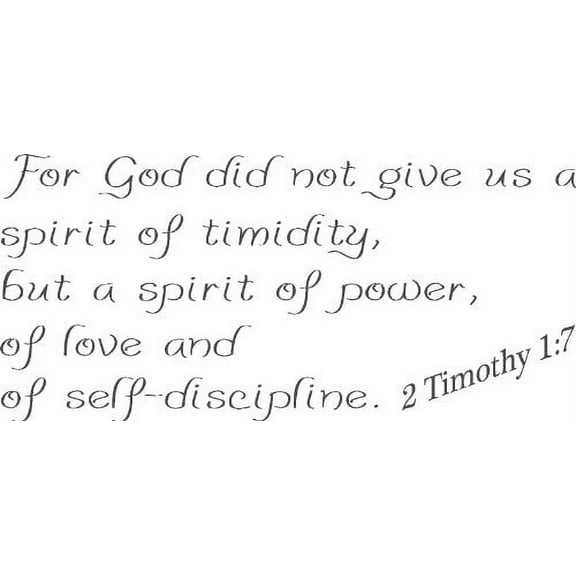 For God did not give us a
spirit of timidity,
but a spirit of power,
of love and
of self-discipline.
2 Timothy 1:7